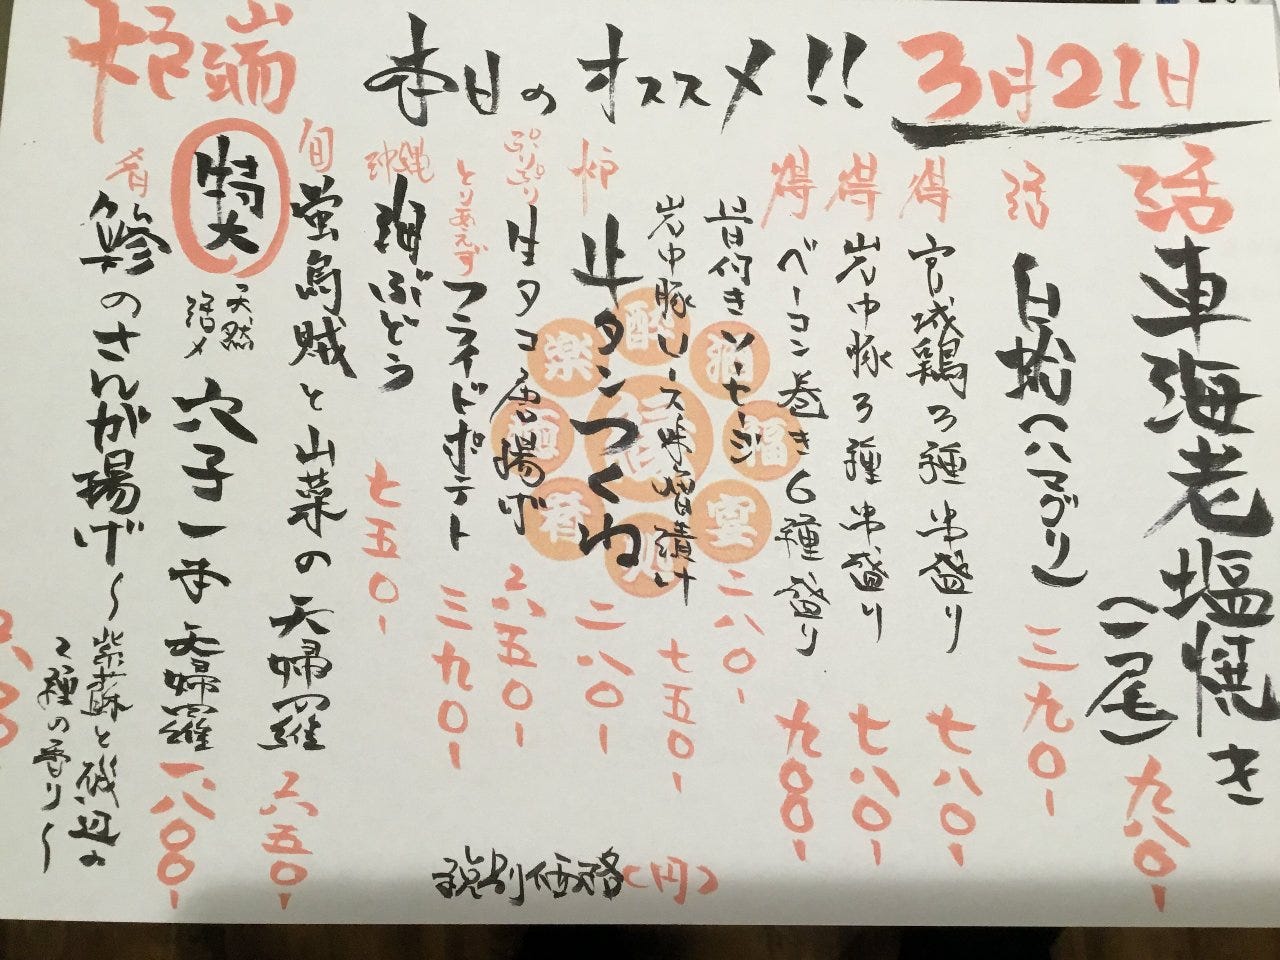 炉端
本日のオススメ!!
3月21日
活 車海老塩焼き(一尾) 九八〇-
活 白蛤(ハマグリ) 三九〇-
得 宮城鶏3種串盛り 七八〇-
得 岩中豚3種串盛り 七八〇-
得 ベーコン巻き6種盛り 九〇〇-
骨付きソーセージ 二八〇-
岩中豚ロース味噌漬け 七五〇-
炉 牛タンつくね 二八〇-
ぷりぷり 生タコ唐揚げ 六五〇-
とりあえず フライドポテト 三九〇-
沖縄 海ぶどう 七五〇-
旬 蛍烏賊と山菜の天婦羅 六五〇-
特大 天然 活〆 穴子一本天婦羅 一八〇〇-
肴 鯵のさんが揚げ~紫蘇と磯辺の
2種の香り~
税別価格(円)
酔
酒
福
宴
処
肴
麺
楽
縁